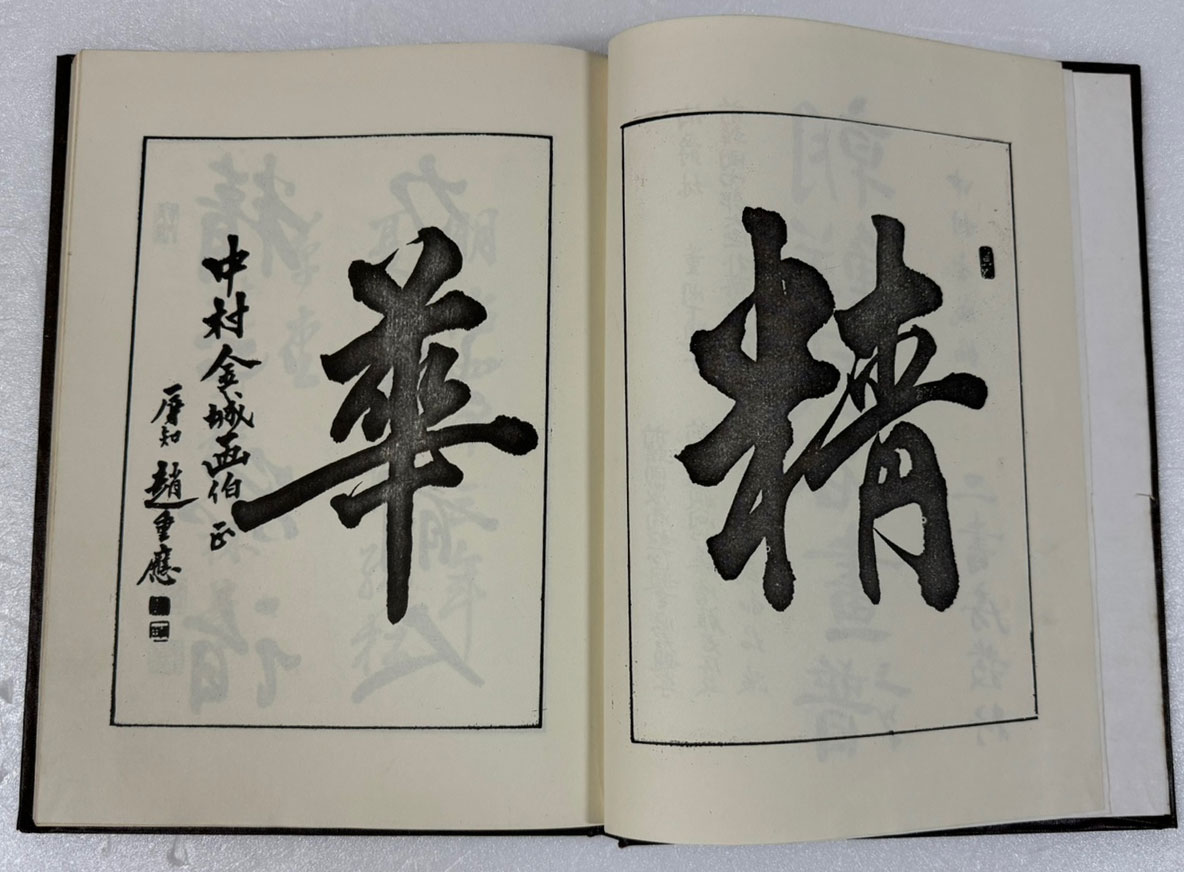 精
華
中村金城畫伯正
辱知 趙重應